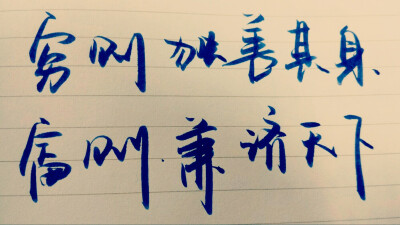 穷则独善其身、
富则兼济天下